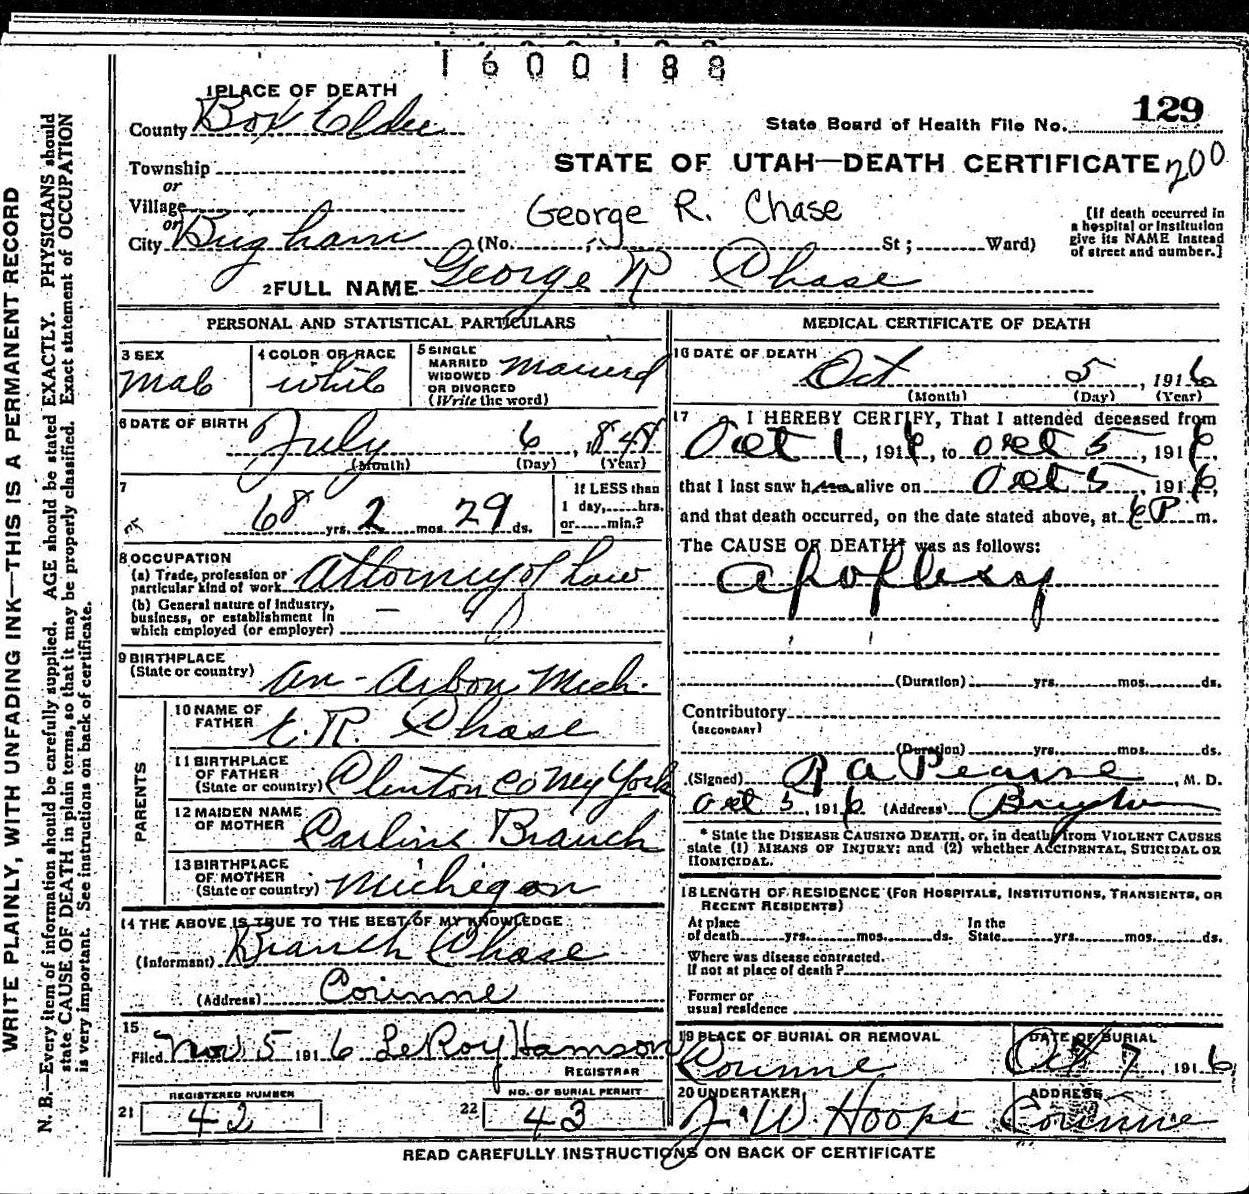 1600188
1 PLACE OF DEATH
County Box Elder
State Board of Health File No. 129
Township
STATE OF UTAH—DEATH CERTIFICATE 200
or
Village
George R. Chase
or
City Brigham (No. ; St; Ward)
[If death occurred in
a hospital or institution
give its NAME instead
of street and number.]
2 FULL NAME George R Chase
PERSONAL AND STATISTICAL PARTICULARS
3 SEX
Male
4 COLOR OR RACE
white
5 SINGLE
MARRIED
WIDOWED
OR DIVORCED
(Write the word)
Married
6 DATE OF BIRTH
July 6, 1848
(Month) (Day) (Year)
7
68 yrs. 2 mos. 29 ds.
If LESS than
1 day, hrs.
or min.?
8 OCCUPATION
(a) Trade, profession or
particular kind of work Attorney of Law
(b) General nature of industry,
business, or establishment in
which employed (or employer) —
9 BIRTHPLACE
(State or country) An-Arbor Mich.
PARENTS
10 NAME OF
FATHER E. R. Chase
11 BIRTHPLACE
OF FATHER
(State or country) Clinton Co New York
12 MAIDEN NAME
OF MOTHER Carline Branch
13 BIRTHPLACE
OF MOTHER
(State or country) Michigan
14 THE ABOVE IS TRUE TO THE BEST OF MY KNOWLEDGE
(Informant) Branch Chase
(Address) Corinne
15
Filed Nov 5 1916 LeRoy Hamson
REGISTRAR
REGISTERED NUMBER
21 42
NO. OF BURIAL PERMIT
22 43
MEDICAL CERTIFICATE OF DEATH
16 DATE OF DEATH
Oct 5, 1916
(Month) (Day) (Year)
17 I HEREBY CERTIFY, That I attended deceased from
Oct 1, 1916, to Oct 5, 1916,
that I last saw him alive on Oct 5, 1916,
and that death occurred, on the date stated above, at P m.
The CAUSE OF DEATH* was as follows:
apoplexy
(Duration) yrs. mos. ds.
Contributory
(SECONDARY)
(Duration) yrs. mos. ds.
(Signed) R A Pearse, M. D.
Oct 5, 1916 (Address) Brigham
* State the DISEASE CAUSING DEATH, or, in death from VIOLENT CAUSES
state (1) MEANS OF INJURY; and (2) whether ACCIDENTAL, SUICIDAL OR
HOMICIDAL.
18 LENGTH OF RESIDENCE (FOR HOSPITALS, INSTITUTIONS, TRANSIENTS, OR
RECENT RESIDENTS)
At place
of death yrs. mos. ds.
In the
State yrs. mos. ds.
Where was disease contracted.
If not at place of death?
Former or
usual residence
19 PLACE OF BURIAL OR REMOVAL
Corinne
DATE OF BURIAL
Oct 7, 1916
20 UNDERTAKER
J. W. Hoops
ADDRESS
Corinne
READ CAREFULLY INSTRUCTIONS ON BACK OF CERTIFICATE
WRITE PLAINLY, WITH UNFADING INK—THIS IS A PERMANENT RECORD
N. B.—Every item of information should be carefully supplied. AGE should be stated EXACTLY. PHYSICIANS should
state CAUSE OF DEATH in plain terms, so that it may be properly classified. Exact statement of OCCUPATION
is very important. See instructions on back of certificate.